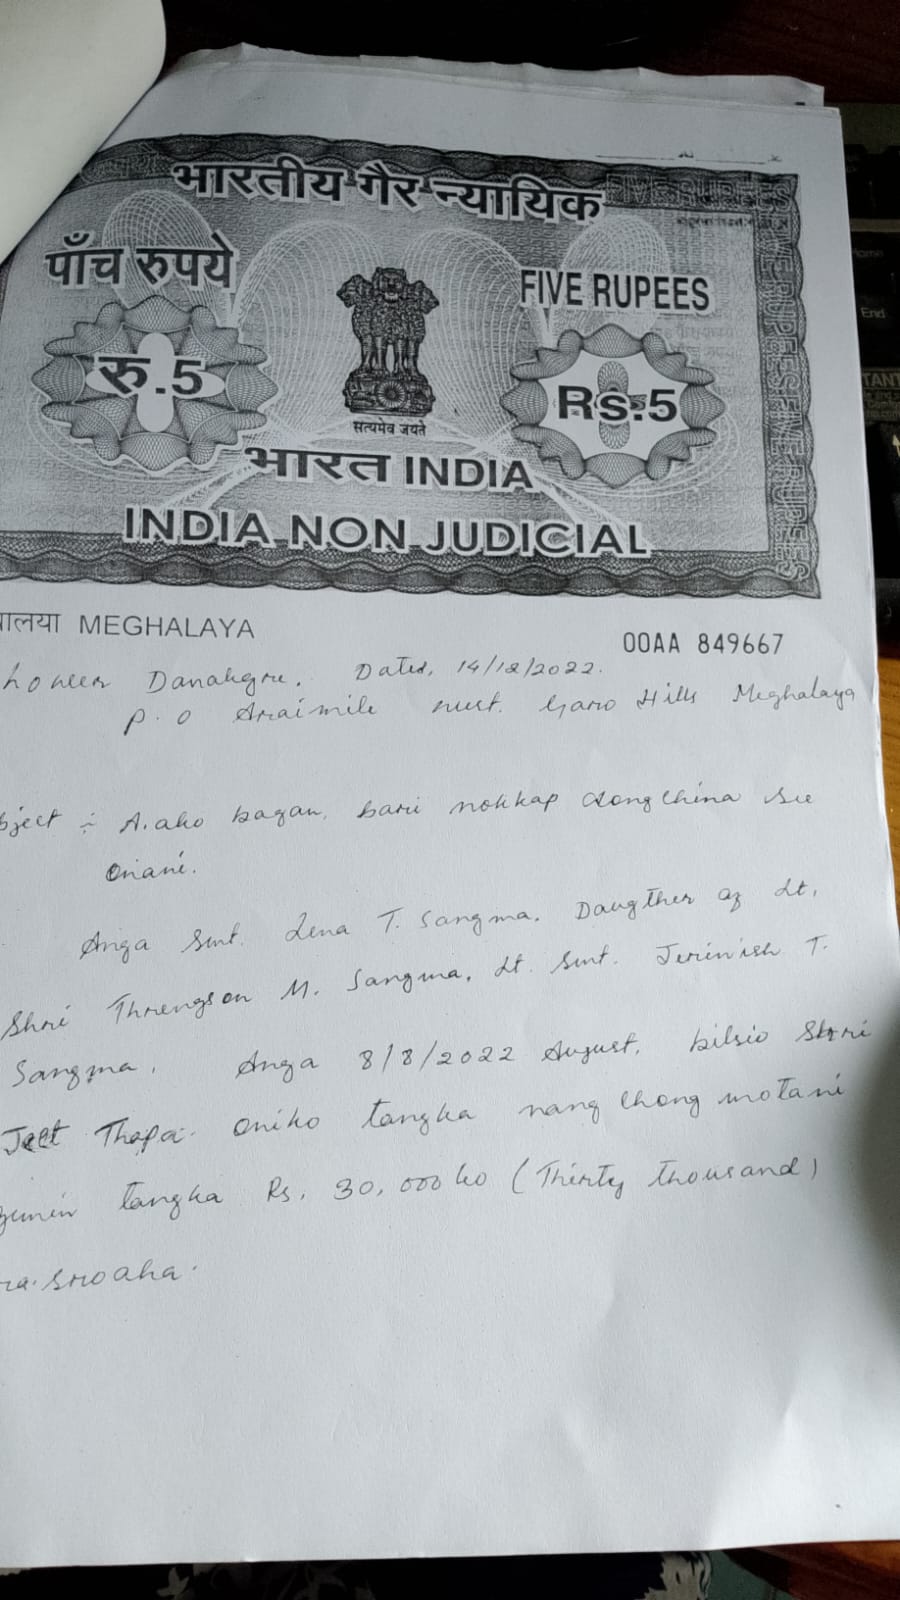 भारतीय गैर न्यायिक
पाँच रुपये
FIVE RUPEES
रु.5
Rs.5
सत्यमेव जयते
भारत INDIA
INDIA NON JUDICIAL
MEGHALAYA
00AA 849667
Danakgre. Dated, 14/12/2022.
P.O Araimile west. Garo Hills Meghalaya
bject :- A.ako bagan, bari nokkap dongchina see
onani.
Anga Smt. Lena T. Sangma. Daugther of Lt.
Shri Threngson M. Sangma, Lt. Smt. Jerinish T.
Sangma. Anga 8/8/2022 August, bilsio Shri
Jeet Thapa. oniko tangka nang chong motani
gimin tangka Rs. 30,000 ko (Thirty thousand)
ra.sroaha.
FIVE RUPEES